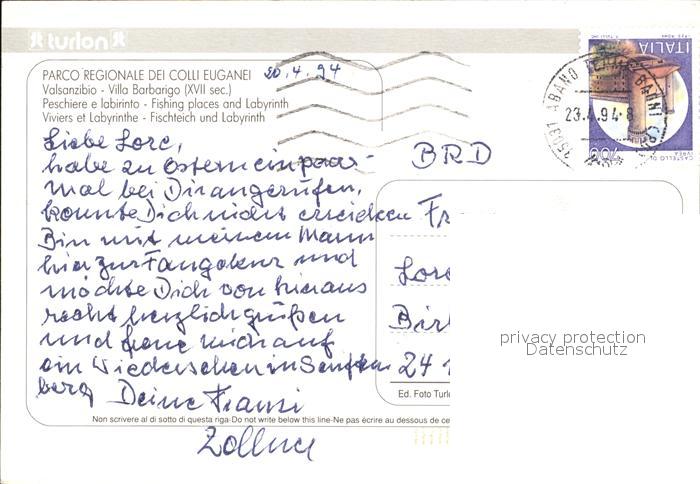 turlon
PARCO REGIONALE DEI COLLI EUGANEI
Valsanzibio - Villa Barbarigo (XVII sec.)
Peschiere e labirinto - Fishing places and Labyrinth
Viviers et Labyrinthe - Fischteich und Labyrinth
20.4.94
Liebe Lore,
habe zu Ostern ein paar-
mal bei Dir angerufen,
konnte Dich nicht erreichen
Bin mit meinem Mann
hier zur Fangokur und
möchte Dich von hier aus
recht herzlich grüßen
und freue mich auf
ein Wiedersehen in Senften
berg Deine Franzi
Zollner
Non scrivere al di sotto di questa riga-Do not write below this line-Ne pas écrire au dessous de ce
BRD
Fr
Lore
Bir
24 1
Ed. Foto Turlo
ITALIA
700
CASTELLO DI IVREA
35031 ABANO TERME
23.4.94-8
privacy protection
Datenschutz